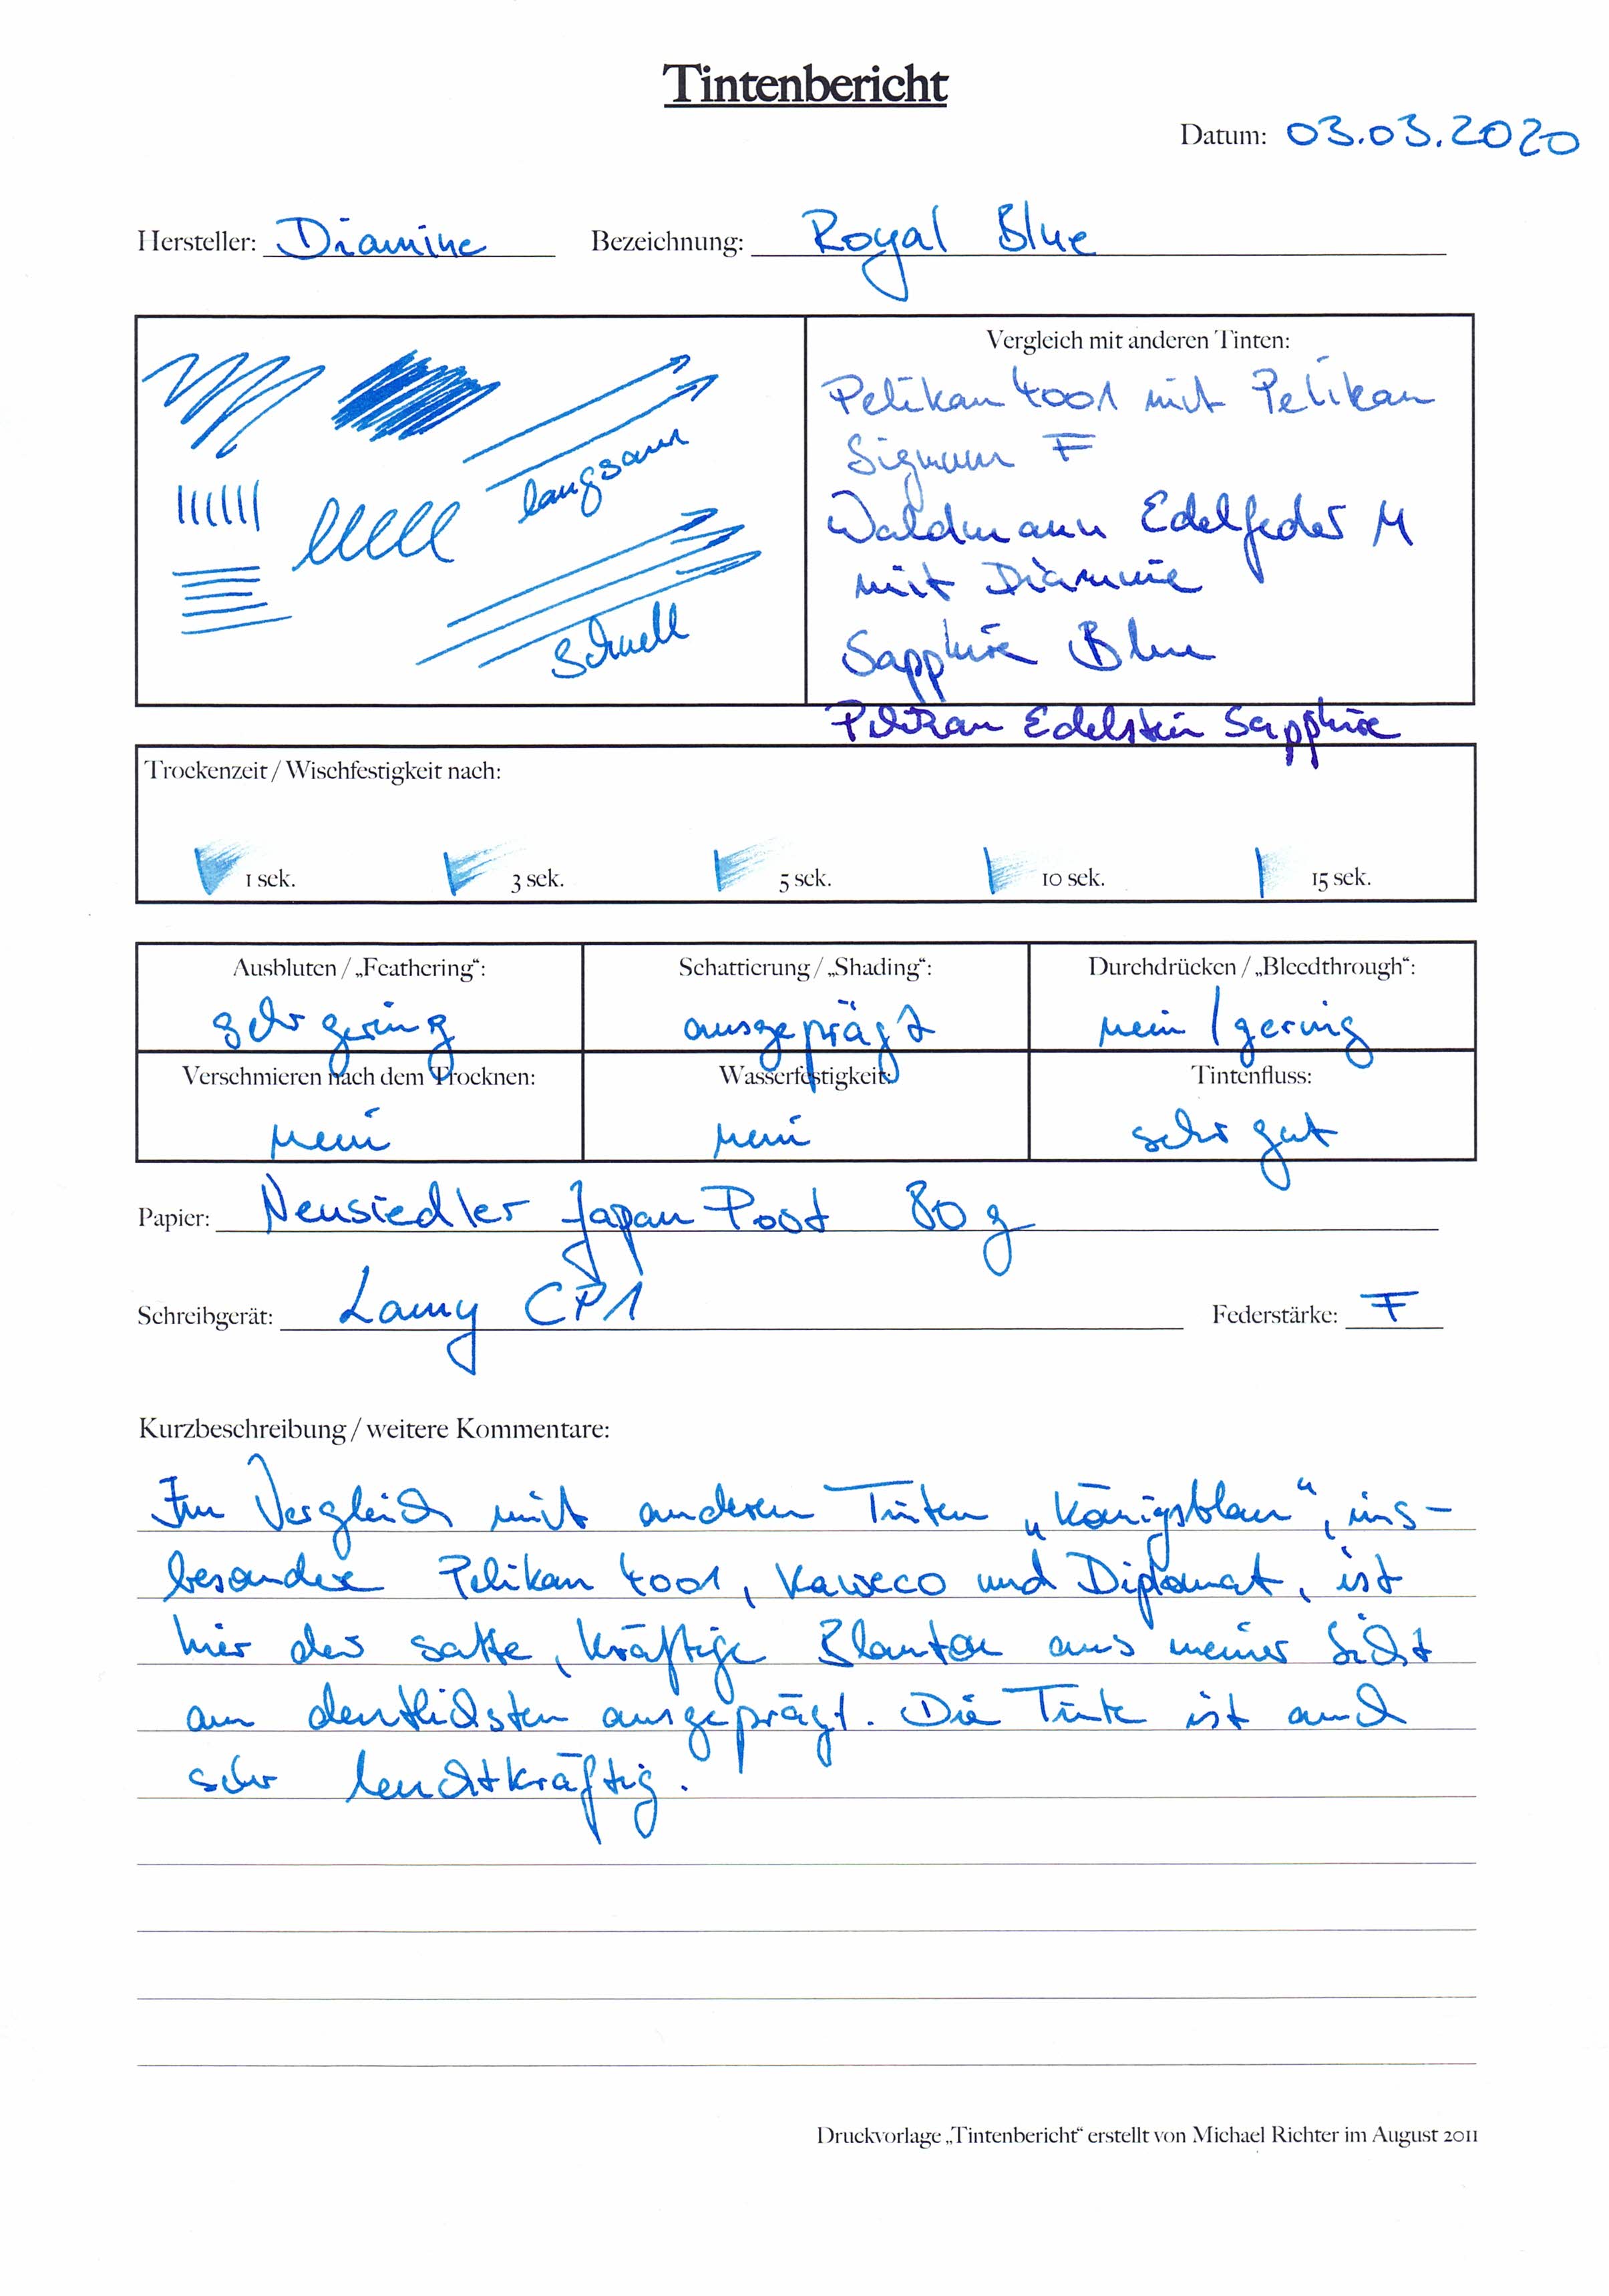 Tintenbericht
Datum: 03.03.2020
Hersteller: Diamine Bezeichnung: Royal Blue
langsam
schnell
Vergleich mit anderen Tinten:
Pelikan 4001 mit Pelikan
Signum F
Waldmann Edelfeder M
mit Diamine
Sapphire Blue
Pelikan Edelstein Sapphire
Trockenzeit / Wischfestigkeit nach:
1 sek. 3 sek. 5 sek. 10 sek. 15 sek.
Ausbluten / „Feathering“: Schattierung / „Shading“: Durchdrücken / „Bleedthrough“:
sehr gering ausgeprägt nein / gering
Verschmieren nach dem Trocknen: Wasserfestigkeit: Tintenfluss:
nein nein sehr gut
Papier: Neusiedler Japan Post 80 g
Schreibgerät: Lamy CP1 Federstärke: F
Kurzbeschreibung / weitere Kommentare:
Im Vergleich mit anderen Tinten „Königsblau“, ins-
besondere Pelikan 4001, Kaweco und Diplomat, ist
hier der satte, kräftige Blauton aus meiner Sicht
am deutlichsten ausgeprägt. Die Tinte ist auch
sehr leuchtkräftig.
Druckvorlage „Tintenbericht“ erstellt von Michael Richter im August 2011